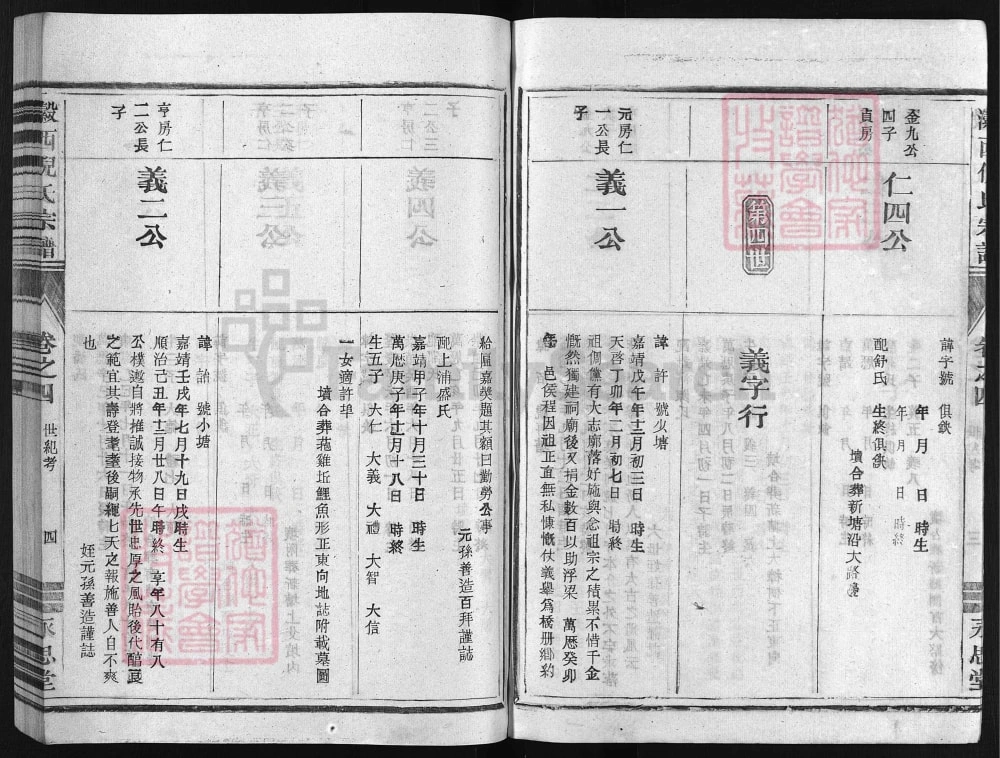 金九公
四子
貞房
仁四公
諱字號　俱缺
年　月　日　時生
年　月　日　時終
配舒氏　生終俱缺
墳合葬新塘沿大路邊
第四世
義字行
元房仁
一公長
子
義一公
諱許　號少塘
嘉靖戊午年十二月初三日　時生
天啓丁卯年二月初七日　時終
祖倜儻有大志廓落好施與念祖宗之積累不惜千金
慨然獨建祠廟後又捐金數百以助浮梁　萬厯癸卯
邑侯程因祖正直無私慷慨仗義舉爲
給匾嘉奬題其額曰勤勞公事
元孫善造百拜謹誌
配上浦盛氏
嘉靖甲子年十月三十日　時生
萬厯庚子年十二月十八日　時終
生五子　大仁　大義　大禮　大智　大信
一女適許
墳合葬菀雞坵鯉魚形正東向地誌附載墓圖
亨房仁
二公長
子
義二公
諱詥　號小塘
嘉靖壬戌年七月十九日戌時生
順治己丑年十二月廿八日午時終　享年八十有八
公樸遬自將推誠接物承先世忠厚之風貽後代
之範宜其壽登耄耋後嗣繩七天之報施善人自不爽
也
姪元孫善造謹誌
西倪氏宗譜
卷之四
世紀考
四
永思堂